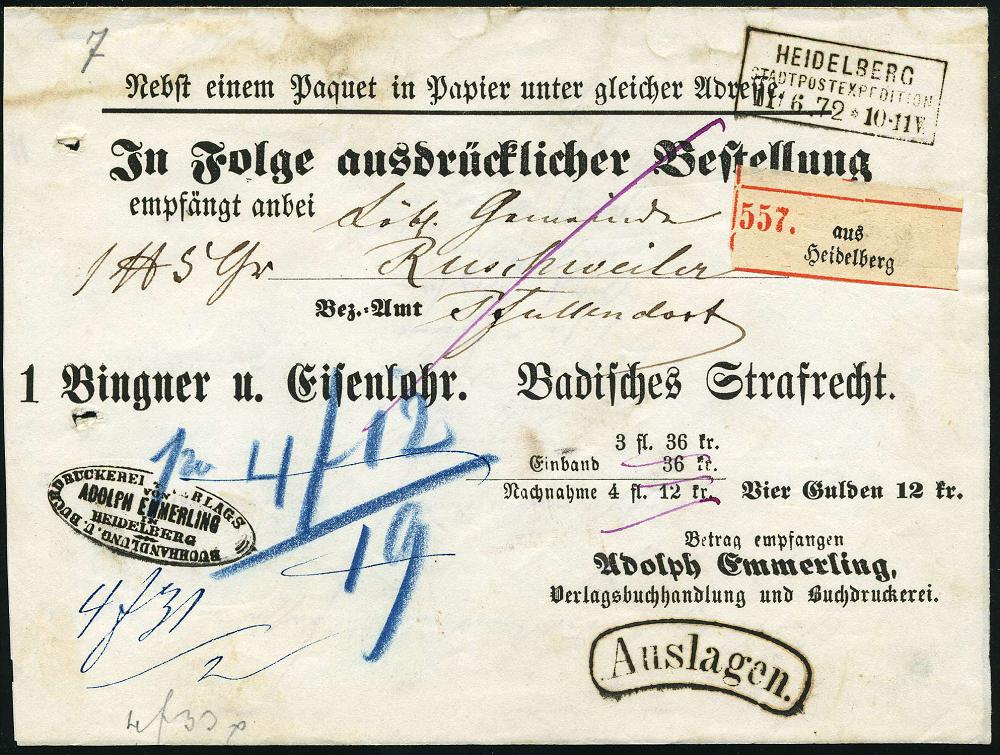 7
HEIDELBERG
STADTPOSTEXPEDITION
11/6.72 * 10-11V.
Nebst einem Paquet in Papier unter gleicher Adresse.
In Folge ausdrücklicher Bestellung
empfängt anbei Löbl. Gemeinde
557. aus Heidelberg
1 ℔ 5 Gr Ruschweiler
Bez.-Amt Pfullendorf
1 Bingner u. Eisenlohr. Badisches Strafrecht.
4/12
3 fl. 36 kr.
Einband 36 kr.
Nachnahme 4 fl. 12 kr. Vier Gulden 12 kr.
BUCHDRUCKEREI VERLAGS
VON
ADOLPH EMMERLING
IN
HEIDELBERG
BUCHHANDLUNG U.
19
Betrag empfangen
Adolph Emmerling,
Verlagsbuchhandlung und Buchdruckerei.
4f 31
2
Auslagen.
4f33